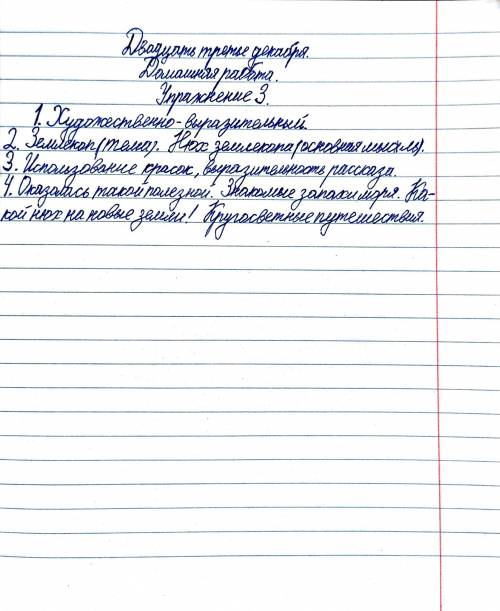 Двадцать третье декабря.
Домашняя работа.
Упражнение 3.
1. Художественно-выразительный.
2. Землекоп (тема). Нюх землекопа (основная мысль).
3. Использование красок, выразительность рассказа.
4. Оказалась такой полезной. Знакомые запахи моря. Ка-
кой нюх на новые земли! Кругосветные путешествия.